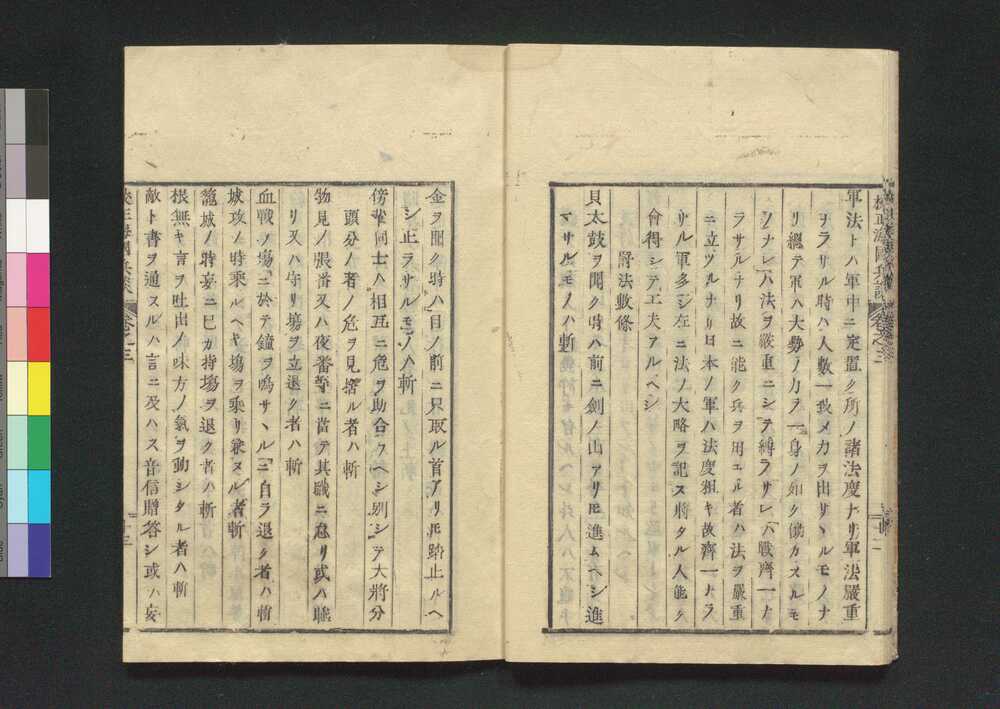 軍法トハ軍中ニ定置ク所ノ諸法度ナリ軍法嚴重
ヲラサル時ハ人數一致メカヲ出サヽルモノナ
リ總テ軍ハ大勢ノ力ヲ一身ノ如ク働カスルモ
ノナレハ法ヲ嚴重ニシテ縛ラサレハ戰齊一ナ
ラサルナリ故ニ能ク兵ヲ用エル者ハ法ヲ嚴重
ニ立ツルナリ日本ノ軍ハ法度粗キ故齊一ナラ
サル軍多シ左ニ法ノ大略ヲ記ス將タル人能ク
會得シテ工夫アルヘシ
軍法數條
貝太鼓ヲ聞ク時ハ前ニ劍ノ山アリ𪜈進ムヘシ進
マサルモノハ斬
金ヲ聞ク時ハ目ノ前ニ只取ル首アリ𪜈踏止ルヘ
シ止ラサルモノハ斬
傍輩同士ハ相互ニ危ヲ助合フヘシ別シテ大將分
頭分ノ者ノ危ヲ見捨ル者ハ斬
物見ノ張番又ハ夜番等ニ當テ其職ニ怠リ或ハ睡
リ又ハ守リ場ヲ立退ク者ハ斬
血戰ノ場ニ於テ鐘ヲ鳴サヽルニ自ラ退ク者ハ斬
城攻ノ時乘ルヘキ塲ヲ乘リ兼ヌル者斬
籠城ノ時妄ニ己カ持塲ヲ退ク者ハ斬
根無キ言ヲ吐出ノ味方ノ氣ヲ動シタル者ハ斬
敵ト書ヲ通スルハ言ニ及ハス音信贈答シ或ハ妄